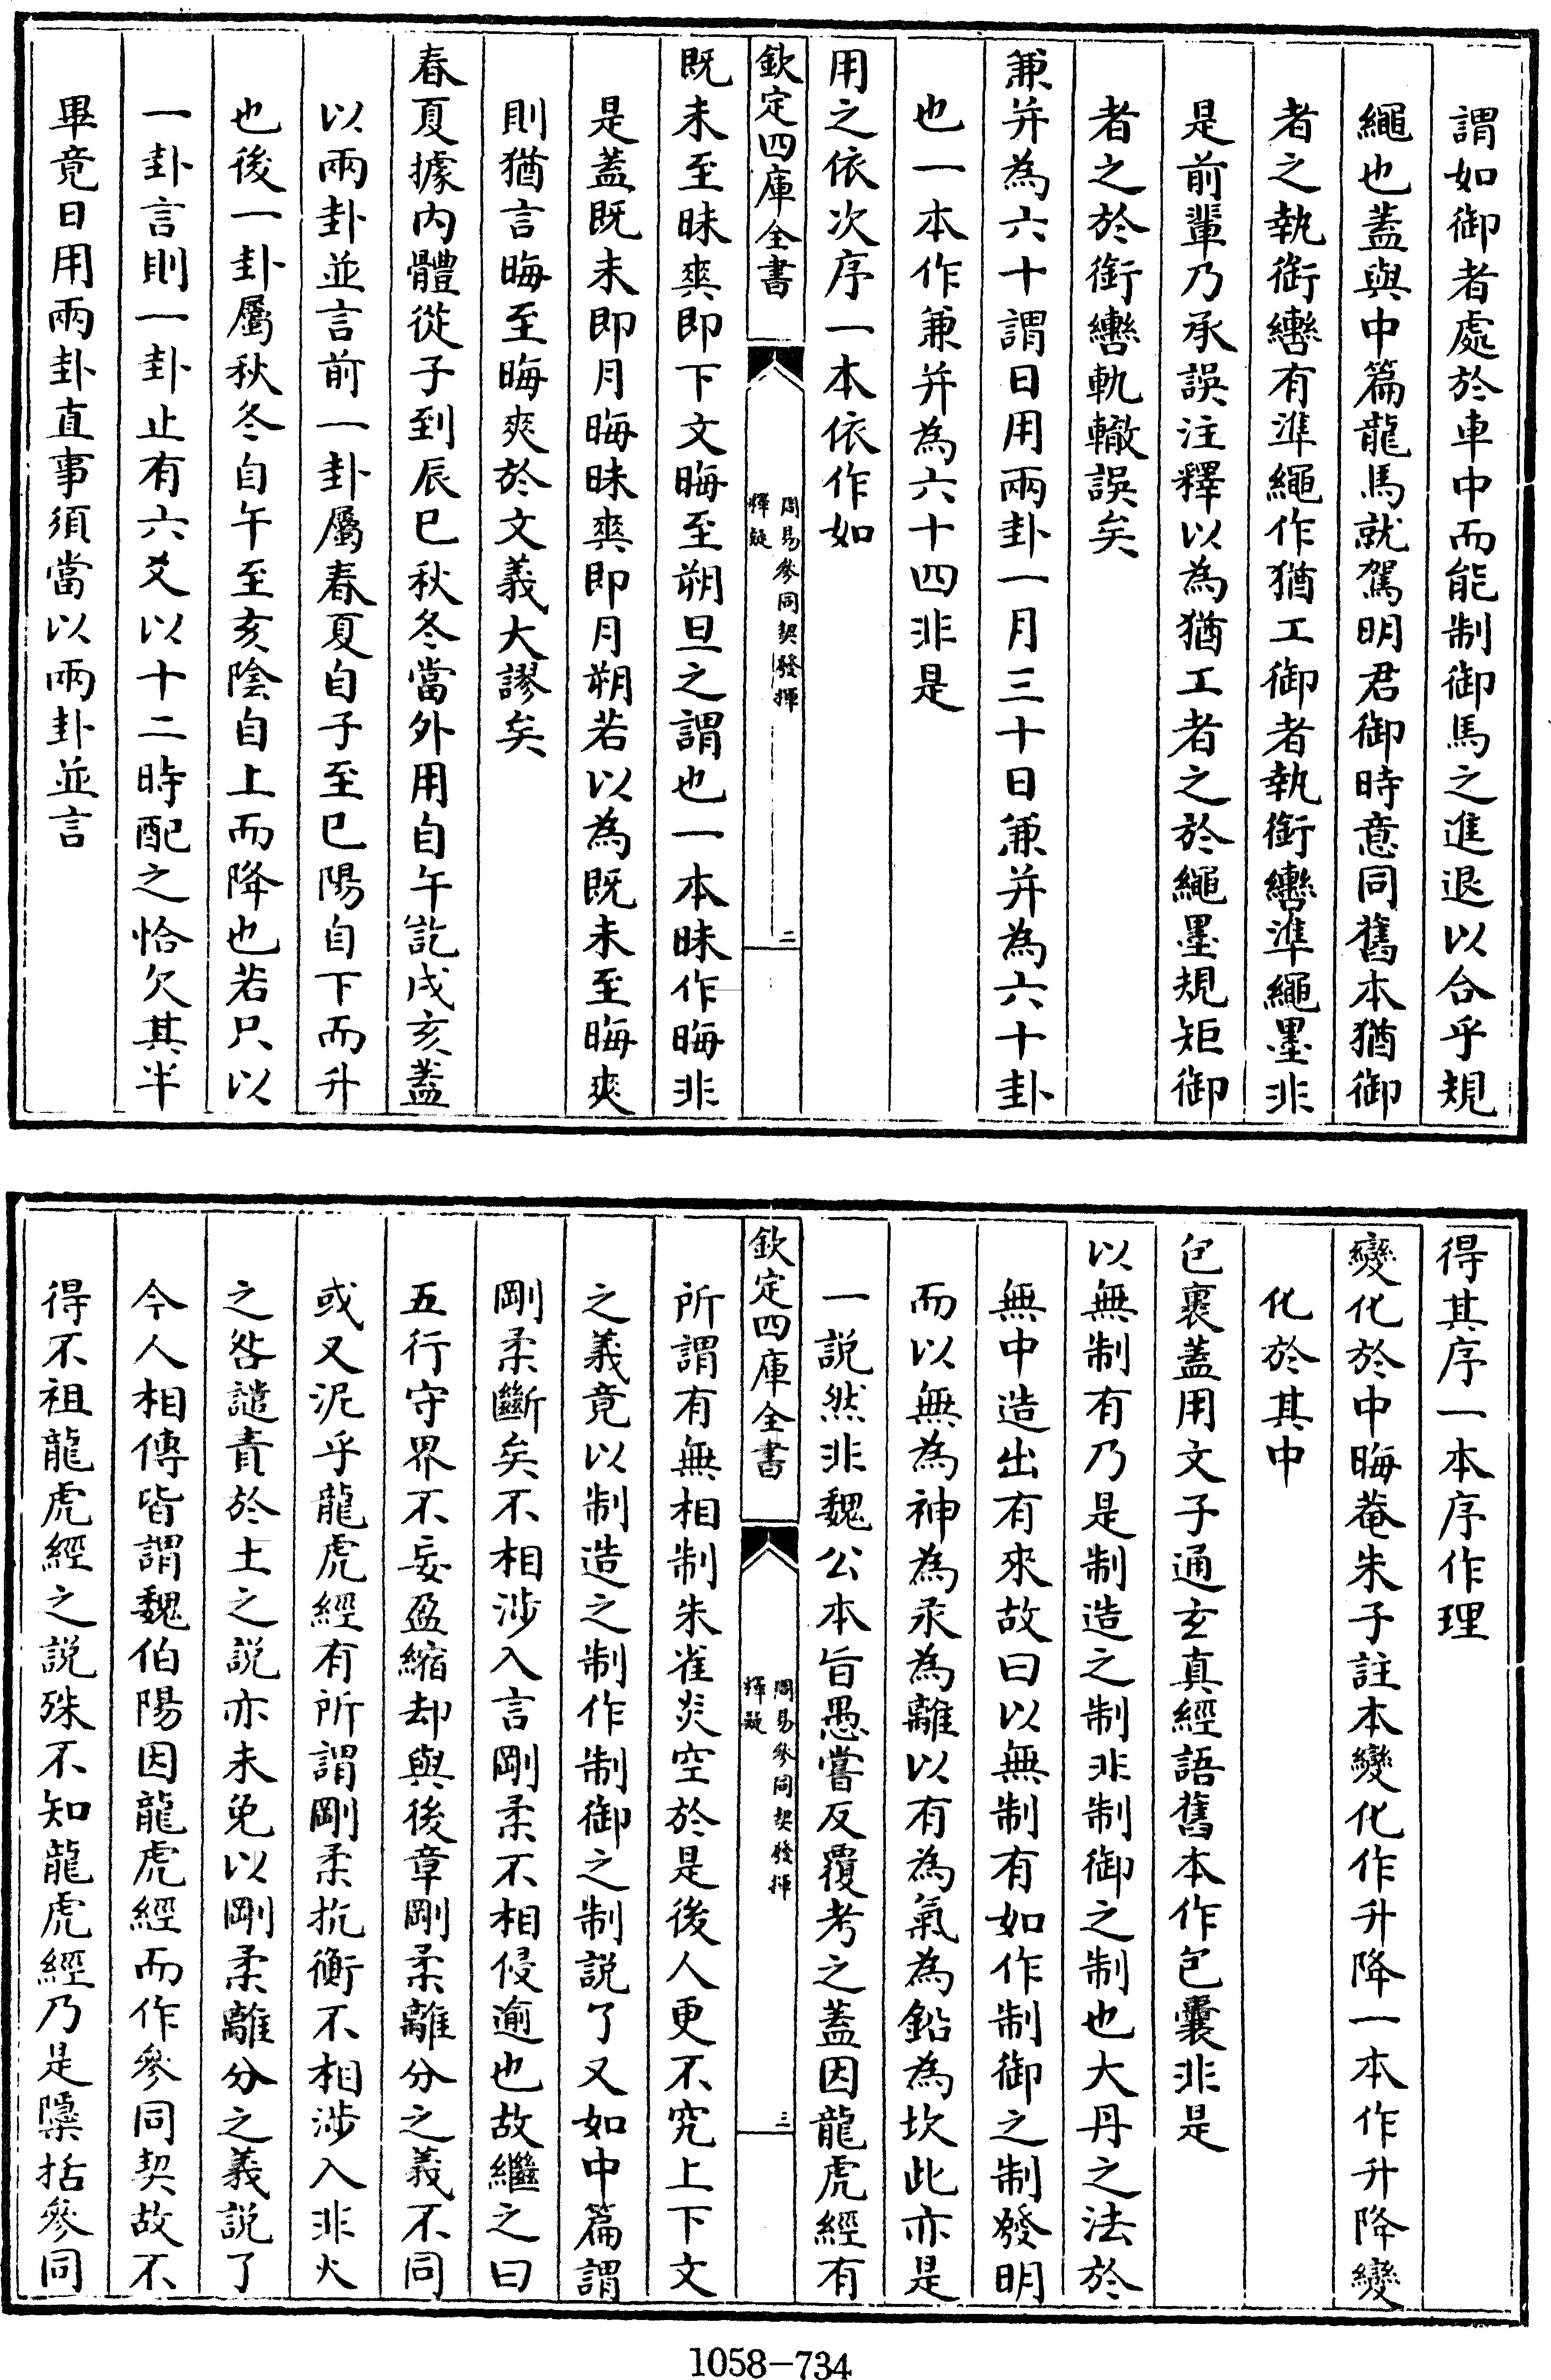 謂如御者處於車中而能制御馬之進退以合乎規
繩也蓋與中篇龍馬就駕明君御時意同舊本猶御
者之執銜轡有準繩作猶工御者執銜轡準繩墨非
是前輩乃承誤注釋以為猶工者之於繩墨規矩御
者之於銜轡軌轍誤矣
兼并為六十謂日用兩卦一月三十日兼并為六十卦
也一本作兼并為六十四非是
用之依次序一本依作如
欽定四庫全書
周易參同契發揮
釋疑
二
既未至昧爽即下文晦至朔旦之謂也一本昧作晦非
是蓋既未即月晦昧爽即月朔若以為既未至晦爽
則猶言晦至晦爽於文義大謬矣
春夏據內體從子到辰巳秋冬當外用自午訖戌亥蓋
以兩卦並言前一卦屬春夏自子至巳陽自下而升
也後一卦屬秋冬自午至亥陰自上而降也若只以
一卦言則一卦止有六爻以十二時配之恰欠其半
畢竟日用兩卦直事須當以兩卦並言
得其序一本序作理
變化於中晦菴朱子註本變化作升降一本作升降變
化於其中
包裹蓋用文子通玄真經語舊本作包囊非是
以無制有乃是制造之制非制御之制也大丹之法於
無中造出有來故曰以無制有如作制御之制發明
而以無為神為汞為離以有為氣為鉛為坎此亦是
一說然非魏公本旨愚嘗反覆考之蓋因龍虎經有
欽定四庫全書
周易參同契發揮
釋疑
三
所謂有無相制朱雀炎空於是後人更不究上下文
之義竟以制造之制作制御之制說了又如中篇謂
剛柔斷矣不相涉入言剛柔不相侵逾也故繼之曰
五行守界不妄盈縮却與後章剛柔離分之義不同
或又泥乎龍虎經有所謂剛柔抗衡不相涉入非火
之咎譴責於土之說亦未免以剛柔離分之義說了
今人相傳皆謂魏伯陽因龍虎經而作參同契故不
得不祖龍虎經之說殊不知龍虎經乃是檃括參同
1058-734